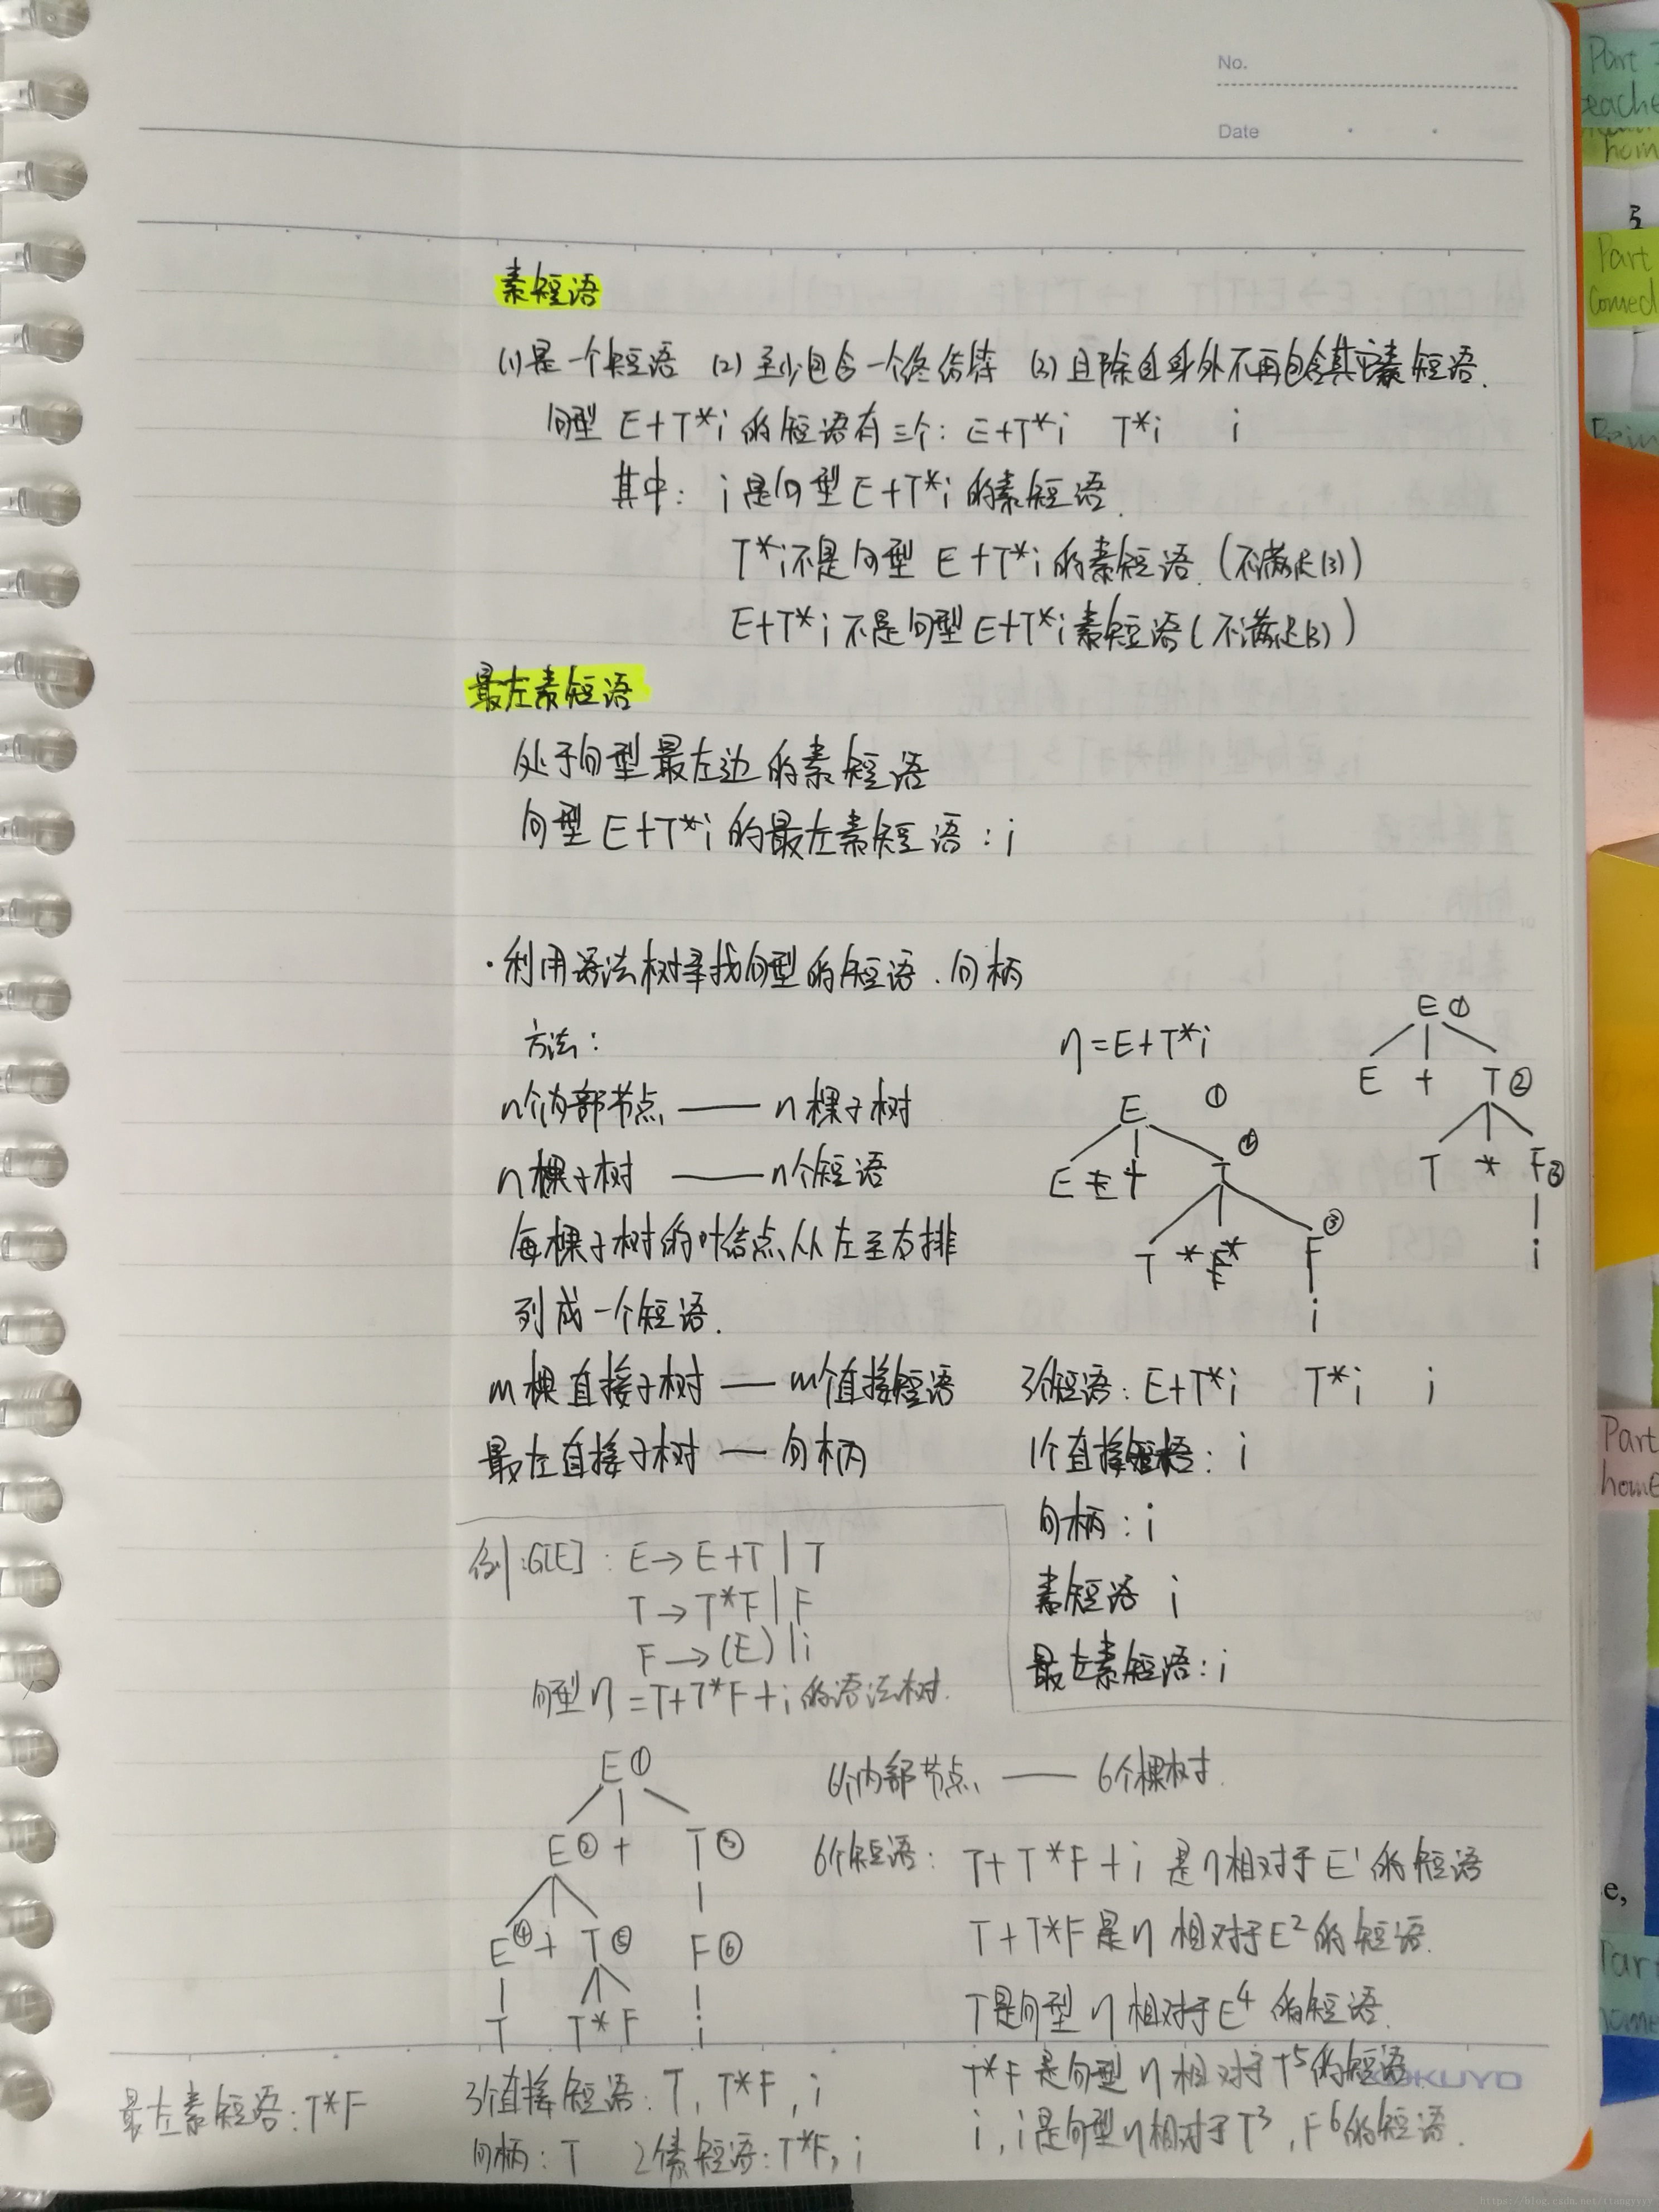 No.
Date
素短语
(1)是一个短语 (2)至少包含一个终结符 (3)且除自身外不再包含其它素短语.
句型 E+T*i 的短语有三个: E+T*i T*i i
其中: i是句型E+T*i的素短语.
T*i不是句型 E+T*i的素短语.(不满足(3))
E+T*i不是句型E+T*i素短语(不满足(3))
最左素短语
处于句型最左边的素短语
句型E+T*i的最左素短语:i
·利用语法树寻找句型的短语.句柄
方法:
n个内部节点 —— n棵子树
n棵子树 —— n个短语
每棵子树的叶结点从左至右排
列成一个短语.
m棵直接子树 — m个直接短语
最左直接子树 — 句柄
η=E+T*i
E ①
E + T ②
T * F ③
i
E ①
E + T ②
T * F ③
i
3个短语: E+T*i T*i i
1个直接短语: i
句柄: i
素短语 i
最左素短语: i
例:G[E]: E→E+T|T
T→T*F|F
F→(E)|i
句型η=T+T*F+i的语法树.
E①
E② + T③
E④ + T⑤ F⑥
T T*F i
6个内部节点 —— 6个棵树.
6个短语: T+T*F+i 是η相对于E¹的短语
T+T*F是η相对于E²的短语.
T是句型η相对于E⁴的短语.
T*F是句型η相对于T⁵的短语.
i,i是句型η相对于T³,F⁶的短语.
3个直接短语: T, T*F, i
句柄: T 2个素短语: T*F, i
最左素短语: T*F
KOKUYO
Part
teache
hom
Part
Comed
Part
home
e,
https://blog.csdn.net/